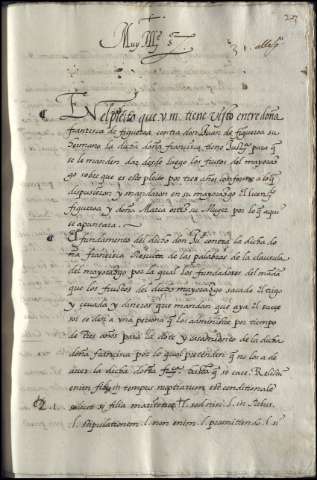 Muy Ill.e s.
En el pleito que v. m. tiene visto entre doña
francisca de figueroa contra don Juan de figueroa su
hermano la dicha doña francisca tiene para q
se le manden dar desde luego los frutos del mayoraz
go sobre que es este pleito por tres años conforme a lo q
dispusieron y mandaron en su mayorazgo
figueroa y doña Maria su Muger por lo q aqui
se apuntara.
El fundamento del dicho don Ju.o contra la dicha do
ña francisca Resulta de las palabras de la clausula
del mayorazgo por la qual los fundadores del
que los frutos del dicho mayorazgo sacado el trigo
y ceuada y dineros que mandan que aya el
sor se den a una persona q los administre por tiempo
de tres años para la dote y casamiento de la dicha
doña francisca por lo qual pretende q no los a de
auer la dicha doña hasta q se case.
enim tempus nuptiarum est conditionale
2. si filia
l. stipulationem l. non enim l.